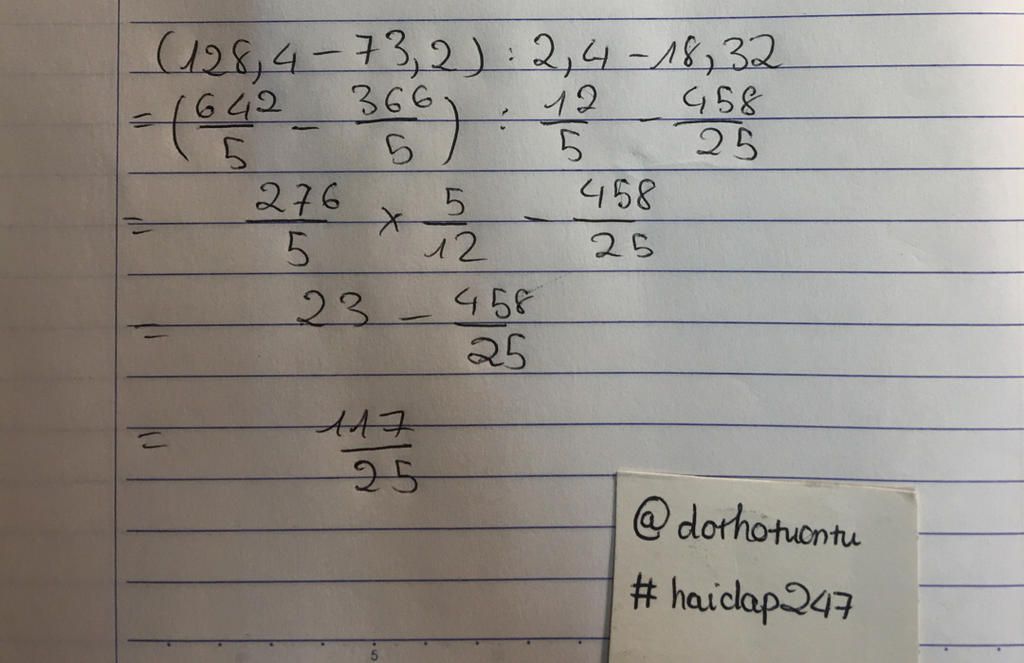 (128,4 - 73,2) : 2,4 - 18,32
= (642/5 - 366/5) : 12/5 - 458/25
= 276/5 × 5/12 - 458/25
= 23 - 458/25
= 117/25
@dothotuontu
#haidap247
5